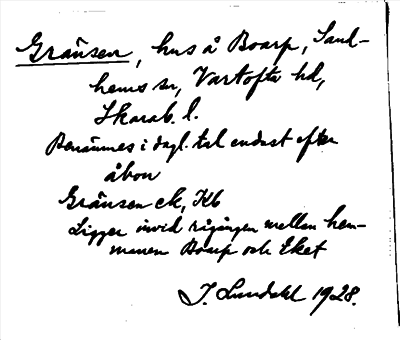 Gränsen, hus å Boarp, Sand-
hems sn, Vartofta hd,
Skarab. l.
Benämnes i dagl. tal endast efter
åbon
Gränsen ek, Kb
Ligger invid rågången mellan hem-
manen Boarp och Eket
J. Lundahl 1928.